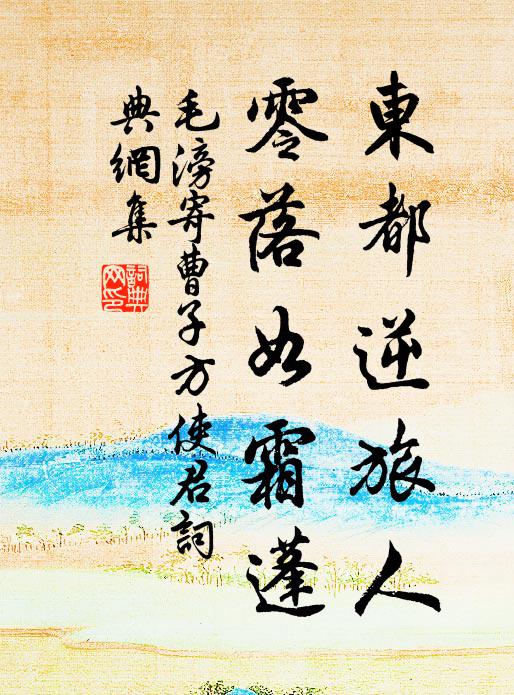 東都逆旅人
零落如霜蓬
毛滂寄曹子方使君詞
典網集
詞典
网印